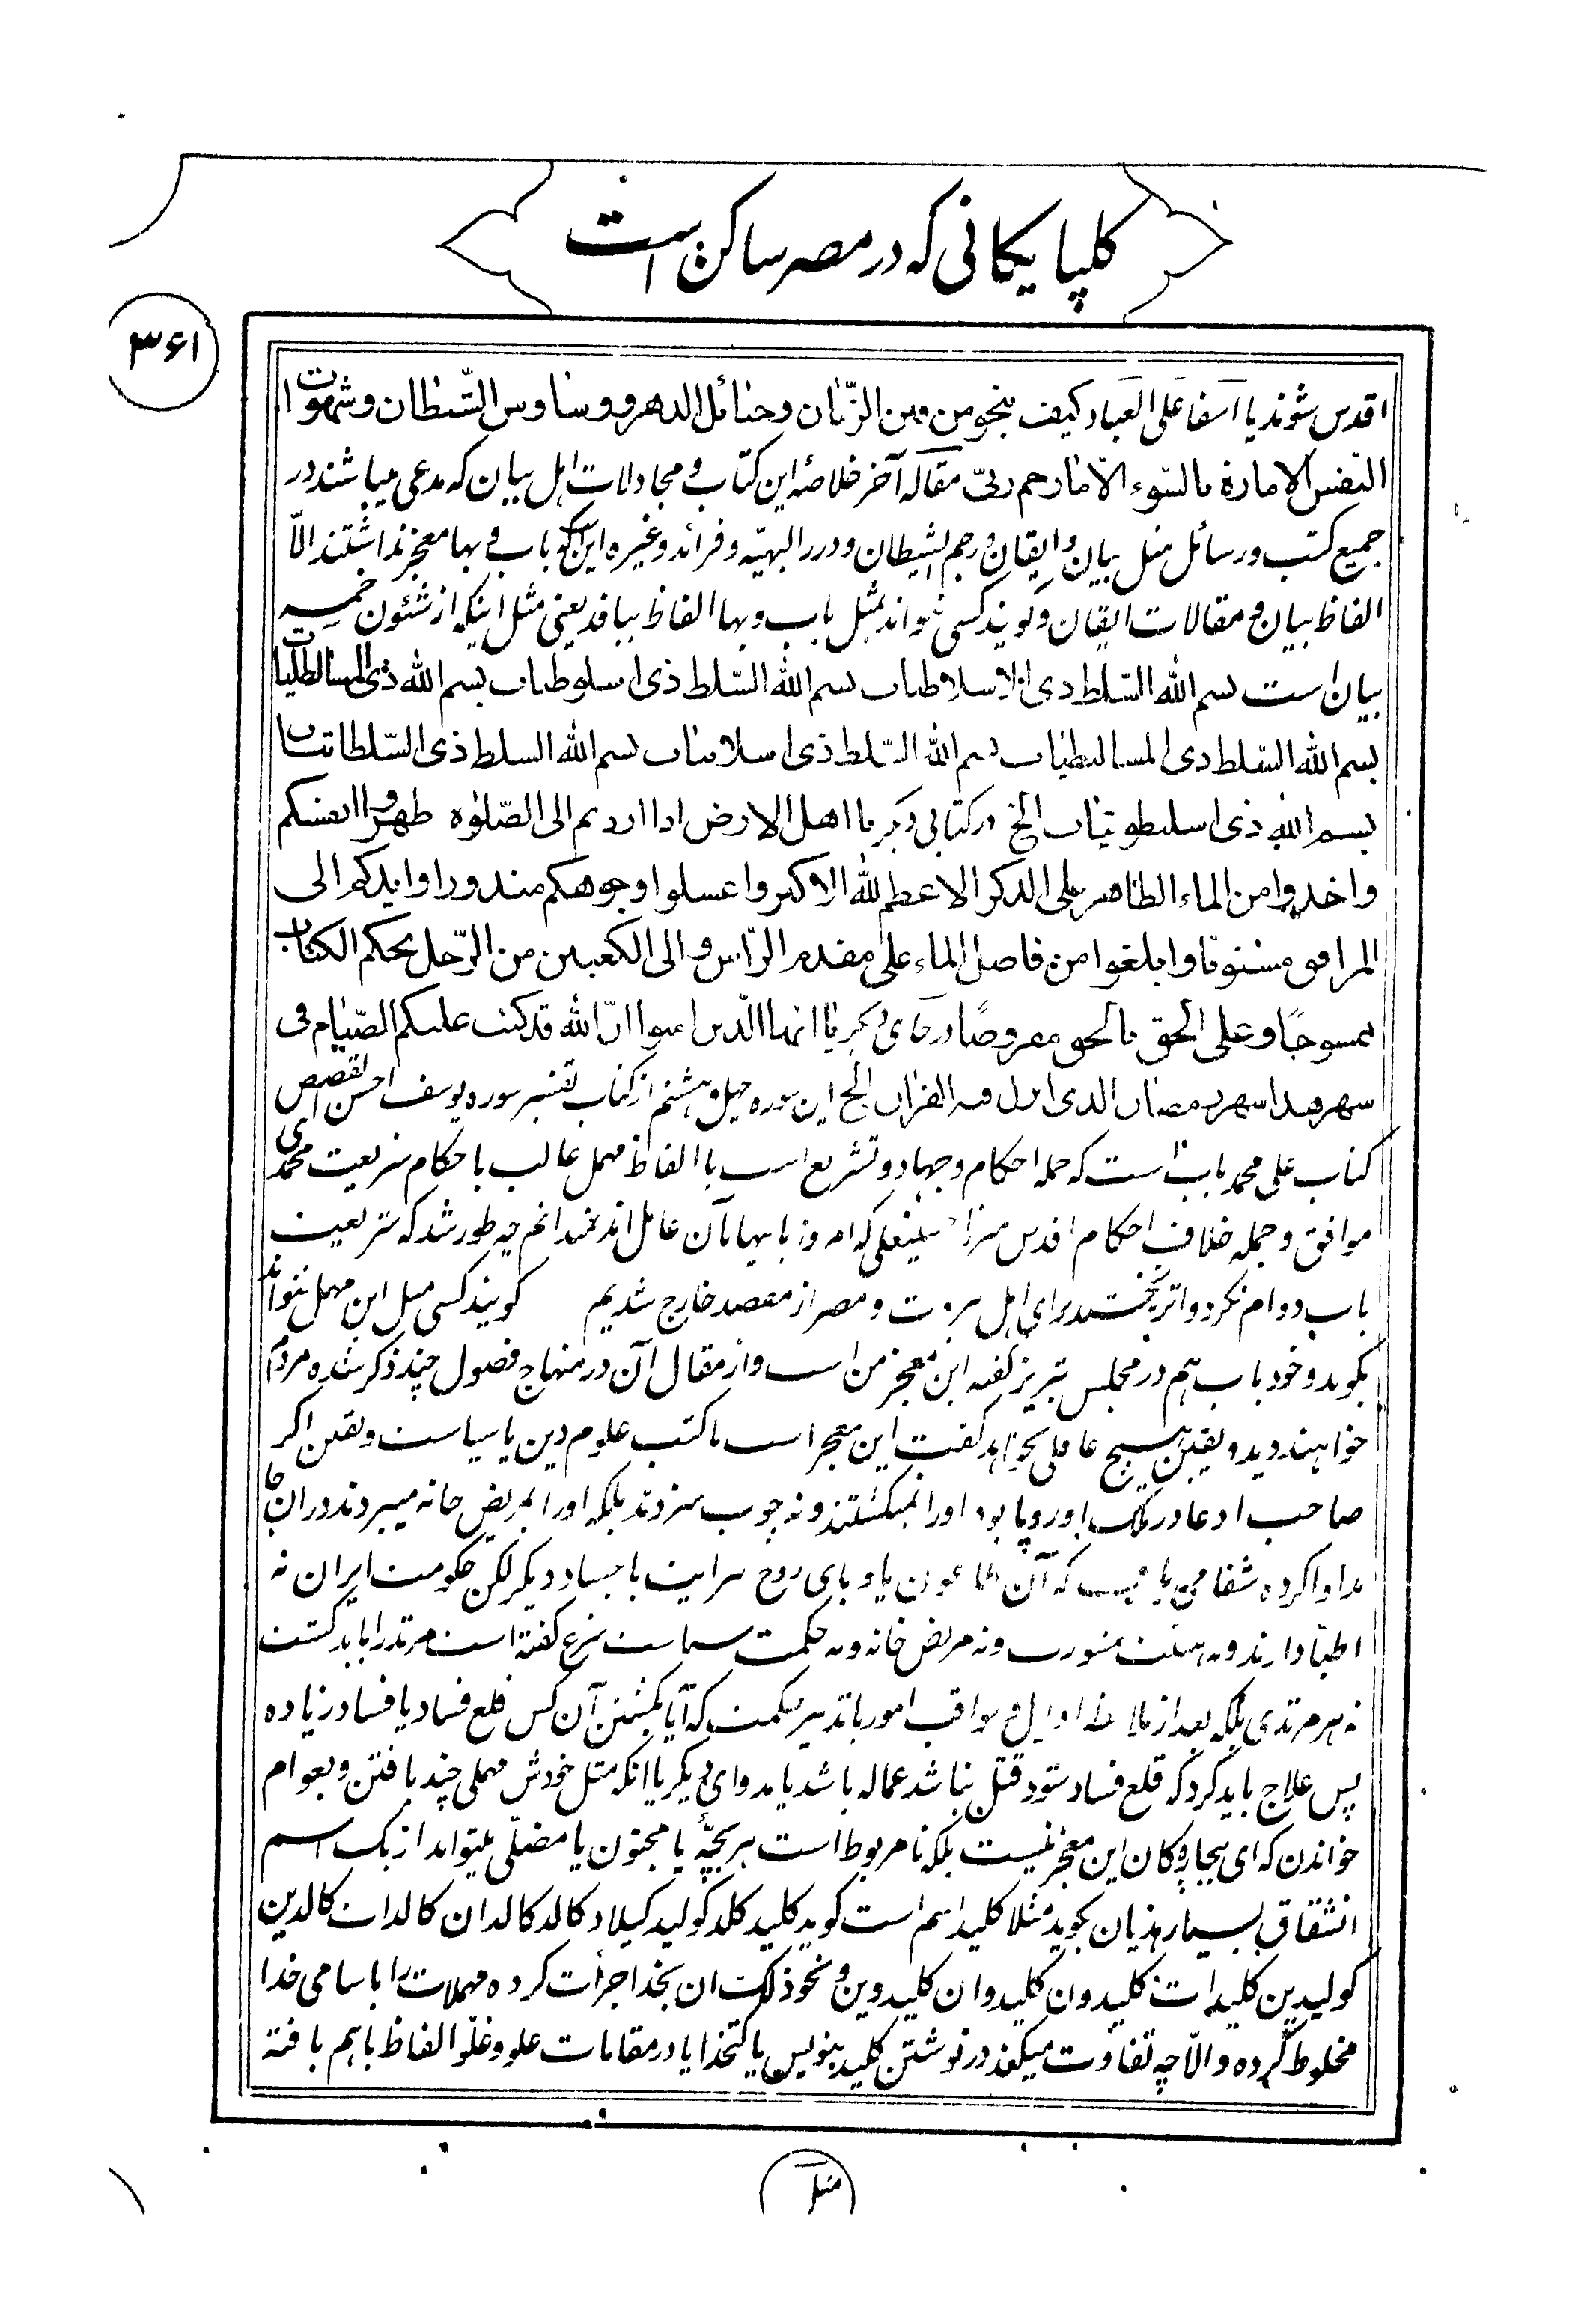 کلپایکانی که در مصر ساکن است
۳۶۱
اقدس شوند یا اسفا علی العباد کیف ینجو من الزمان و حبائل الدهر و وساوس الشیطان و شهوات
النفس الامارة بالسوء الا ما رحم ربی مقاله آخر خلاصه این کتاب و مجادلات اهل بیان که مدعی میباشند در
جمیع کتب و رسائل مثل بیان و ایقان و رجم الشیطان و درر البهیه و فرائد و غیره این باب و بها معجز نداشتند الّا
الفاظ بیان و مقالات ایقان و کویند کسی نتواند بمثل باب و بها الفاظ ببافد یعنی مثل اینکه از شئون خمسه
بیان است بسم الله السلط ذی بسم الله السلط ذی بسم الله ذی
بسم الله السلط ذی بسم الله السلط ذی بسم الله السلط ذی
بسم الله ذی الخ در کتابی دیکر یا اهل الارض اذا اردتم الی الصلوة طهروا انفسکم
و اخذوا من الماء الطاهر علی الذکر الاعظم لله الاکبر و اغسلوا وجوهکم و ایدیکم الی
المرافق و ابلغوا من فاصل الماء علی مقدم الراس و الی الکعبین من الرجل بحکم الکتاب
ممسوحا و علی الحق بالحق مفروضا در جای دیکر یا ایها الذین امنوا ان الله قد کتب علیکم الصیام فی
شهر هذا شهر رمضان الذی انزل فیه القران الخ این سوره چهل و هشتم از کتاب تفسیر سوره یوسف احسن القصص
کتاب علی محمد باب است که جمله احکام و جهاد و تشریع است با الفاظ مهمل غالب با احکام شریعت محمدی
موافق و جمله خلاف احکام اقدس میرزا حسینعلی که امروز بابیها بآن عامل اند نمیدانم چه طور شد که شریعت
باب دوام نکرد و اثر نبخشید برای اهل بیروت و مصر از مقصد خارج شدیم کویند کسی مثل این مهمل نتواند
بکوید و خود باب هم در مجلس تبریز کفته این معجز من است و از مقال آن در منهاج فصول چند ذکر شده مردم
خواهند دید و یقین هیچ عاقلی نخواهد کفت این معجز است یا کتب علوم دین یا سیاست و یقین اکر
صاحب ادعا در ملک اوروپا بود او را نمیکشتند و نه چوب میزدند بلکه او را بمریض خانه میبردند در آن جا
مداوا کرده شفا می یافت که آن طاعون یا وبای روح سرایت باجساد دیکر لکن حکومت ایران نه
اطبّا دارند و نه هیئت مشورت و نه مریض خانه و نه حکمت سیاست شرع کفته است مرتد را باید کشت
نه هر مرتدی بلکه بعد از ملاحظه اوایل و عواقب امور با تدبیر حکمت که آیا بکشتن آن کس قلع فساد یا فساد زیاده
پس علاج باید کرد که قلع فساد شود قتل نباشد عماله باشد یا مدوای دیکر یا انکه مثل خودش مهملی چند بافتن و بعوام
خواندن که ای بیچارکان این معجز نیست بلکه نامربوط است هر بچهٔ یا مجنون یا مضلّی میتواند از یک اسم
انشقاق بسیار هذیان بکوید مثلا کلید اسم است کوید کلید کلد کولید کیلاد کالد کالدان کالدات کالدین
کولیدین کلیدات کلیدون کلیدوان کلیدوین و نحو ذلک ان بخدا جرأت کرده مهملات را با سامی خدا
مخلوط کرده و الّا چه تفاوت میکند در نوشتن کلید بنویس یا کتخدا یا در مقامات علو و غلّو الفاظ با هم بافته
مثل